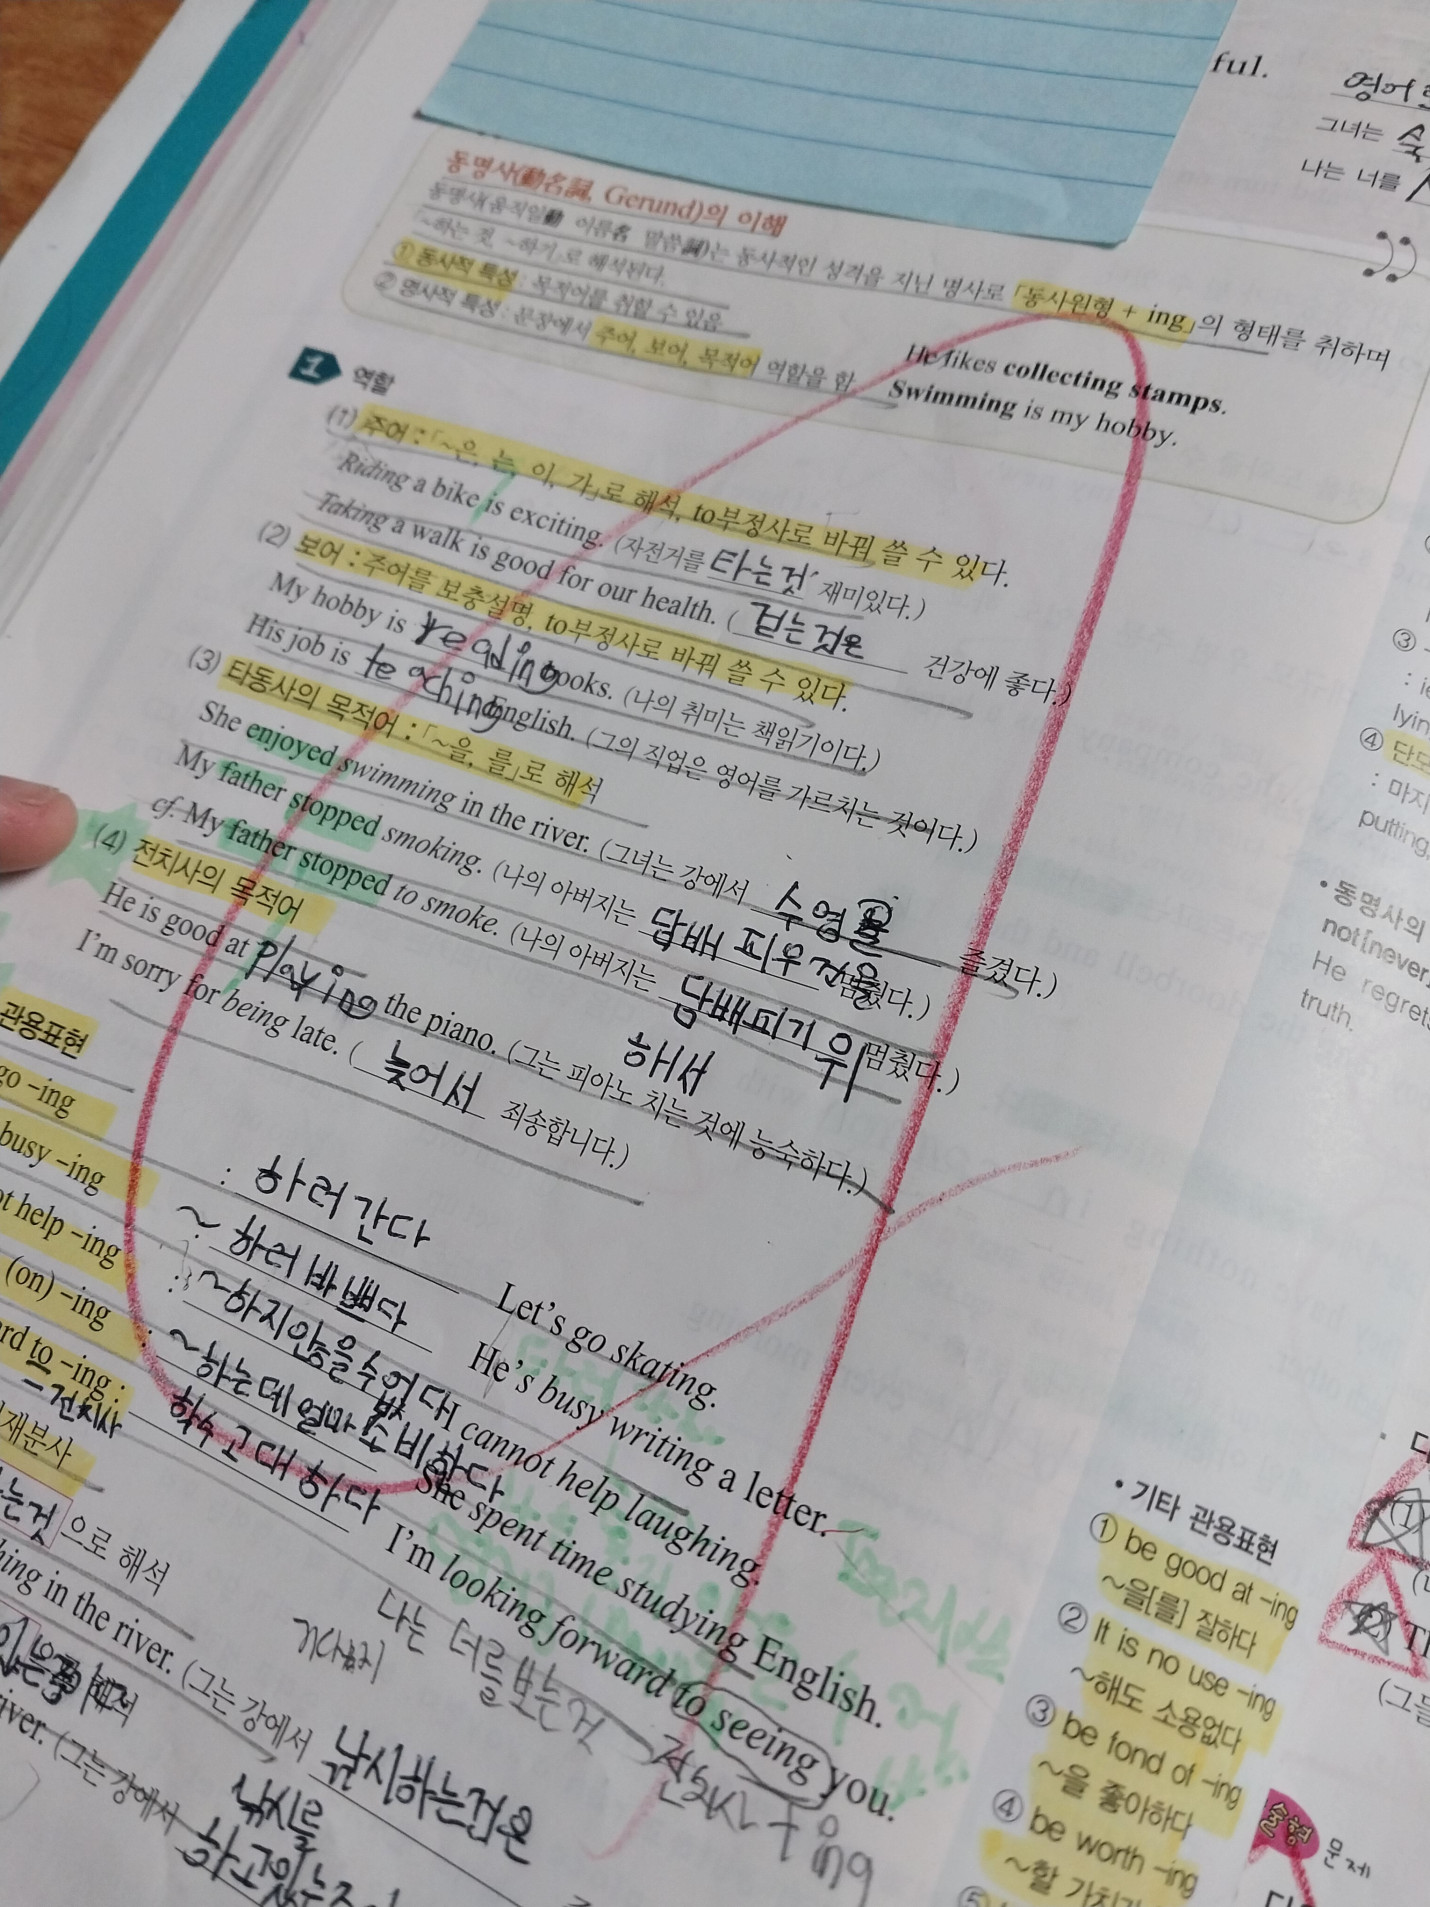 ful.
영어
그녀는
나는 너를
동명사(動名詞, Gerund)의 이해
동명사(움직일動 이름名 말씀詞)는 동사적인 성격을 지닌 명사로 「동사원형 + ing」의 형태를 취하며
「~하는 것, ~하기」로 해석된다.
① 동사적 특성 : 목적어를 취할 수 있음 He likes collecting stamps.
② 명사적 특성 : 문장에서 주어, 보어, 목적어 역할을 함 Swimming is my hobby.
1 역할
(1) 주어 : 「~은, 는, 이, 가」로 해석, to부정사로 바꿔 쓸 수 있다.
Riding a bike is exciting. (자전거를 타는것 재미있다.)
Taking a walk is good for our health. ( 걷는것은 건강에 좋다.)
(2) 보어 : 주어를 보충설명, to부정사로 바꿔 쓸 수 있다.
My hobby is reading books. (나의 취미는 책읽기이다.)
His job is teaching English. (그의 직업은 영어를 가르치는 것이다.)
(3) 타동사의 목적어 : 「~을, 를」로 해석
She enjoyed swimming in the river. (그녀는 강에서 수영을 즐겼다.)
My father stopped smoking. (나의 아버지는 담배 피우 것을 멈췄다.)
cf. My father stopped to smoke. (나의 아버지는 담배피기 위 해서 멈췄다.)
(4) 전치사의 목적어
He is good at playing the piano. (그는 피아노 치는 것에 능숙하다.)
I'm sorry for being late. ( 늦어서 죄송합니다.)
관용표현
go -ing : 하러간다 Let's go skating.
busy -ing ~하러 바쁘다 He's busy writing a letter.
help -ing : ~하지않을수없다 I cannot help laughing.
(on) -ing : ~하는데 얼마 소비하다 She spent time studying English.
to -ing : 학수고대 하다 I'm looking forward to seeing you.
전치사
나는 너를보는것
전치사+ing
재분사
는것 으로 해석
in the river. (그는 강에서 낚시하는것은
해석
river. (그는 강에서 낚시를
③
④
: 마지
putting,
• 동명사의
not[never]
He regrets
truth.
• 기타 관용표현
① be good at -ing
~을[를] 잘하다
② It is no use -ing
~해도 소용없다
③ be fond of -ing
~을 좋아하다
④ be worth -ing
~할 가치가
⑤
문제
(그들